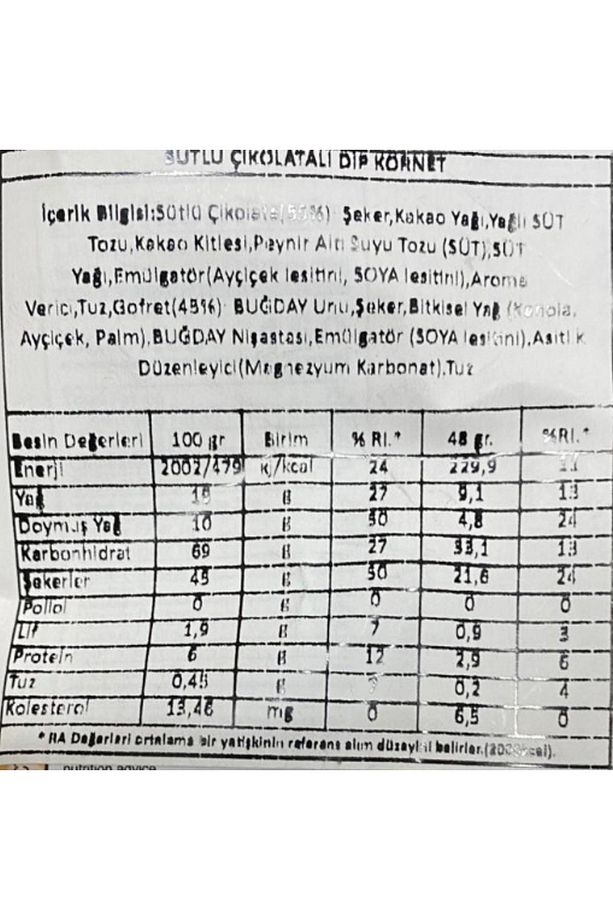 SÜTLÜ ÇİKOLATALI DİP KORNET
İçerik Bilgisi:Sütlü Çikolata(55%) Şeker,Kakao Yağı,Yağlı SÜT
Tozu,Kakao Kitlesi,Peynir Altı Suyu Tozu (SÜT),SÜT
Yağı,Emülgatör(Ayçiçek lesitini, SOYA lesitini),Aroma
Verici,Tuz,Gofret(45%) BUĞDAY Unu,Şeker,Bitkisel Yağ (Kanola,
Ayçiçek, Palm),BUĞDAY Nişastası,Emülgatör (SOYA lesitini),Asitlik
Düzenleyici(Magnezyum Karbonat),Tuz
Besin Değerleri 100 gr Birim % RI.* 48 gr. %RI.*
Enerji 2002/479 kj/kcal 24 229,9 11
Yağ 19 g 27 9,1 13
Doymuş Yağ 10 g 50 4,8 24
Karbonhidrat 69 g 27 33,1 13
Şekerler 45 g 50 21,6 24
Poliol 0 g 0 0 0
Lif 1,9 g 7 0,9 3
Protein 6 g 12 2,9 6
Tuz 0,45 g 0,2 4
Kolesterol 13,48 mg 0 6,5 0
* RA Değerleri ortalama bir yetişkinin referans alım düzeyini belirler.(2000kcal).
nutrition advice